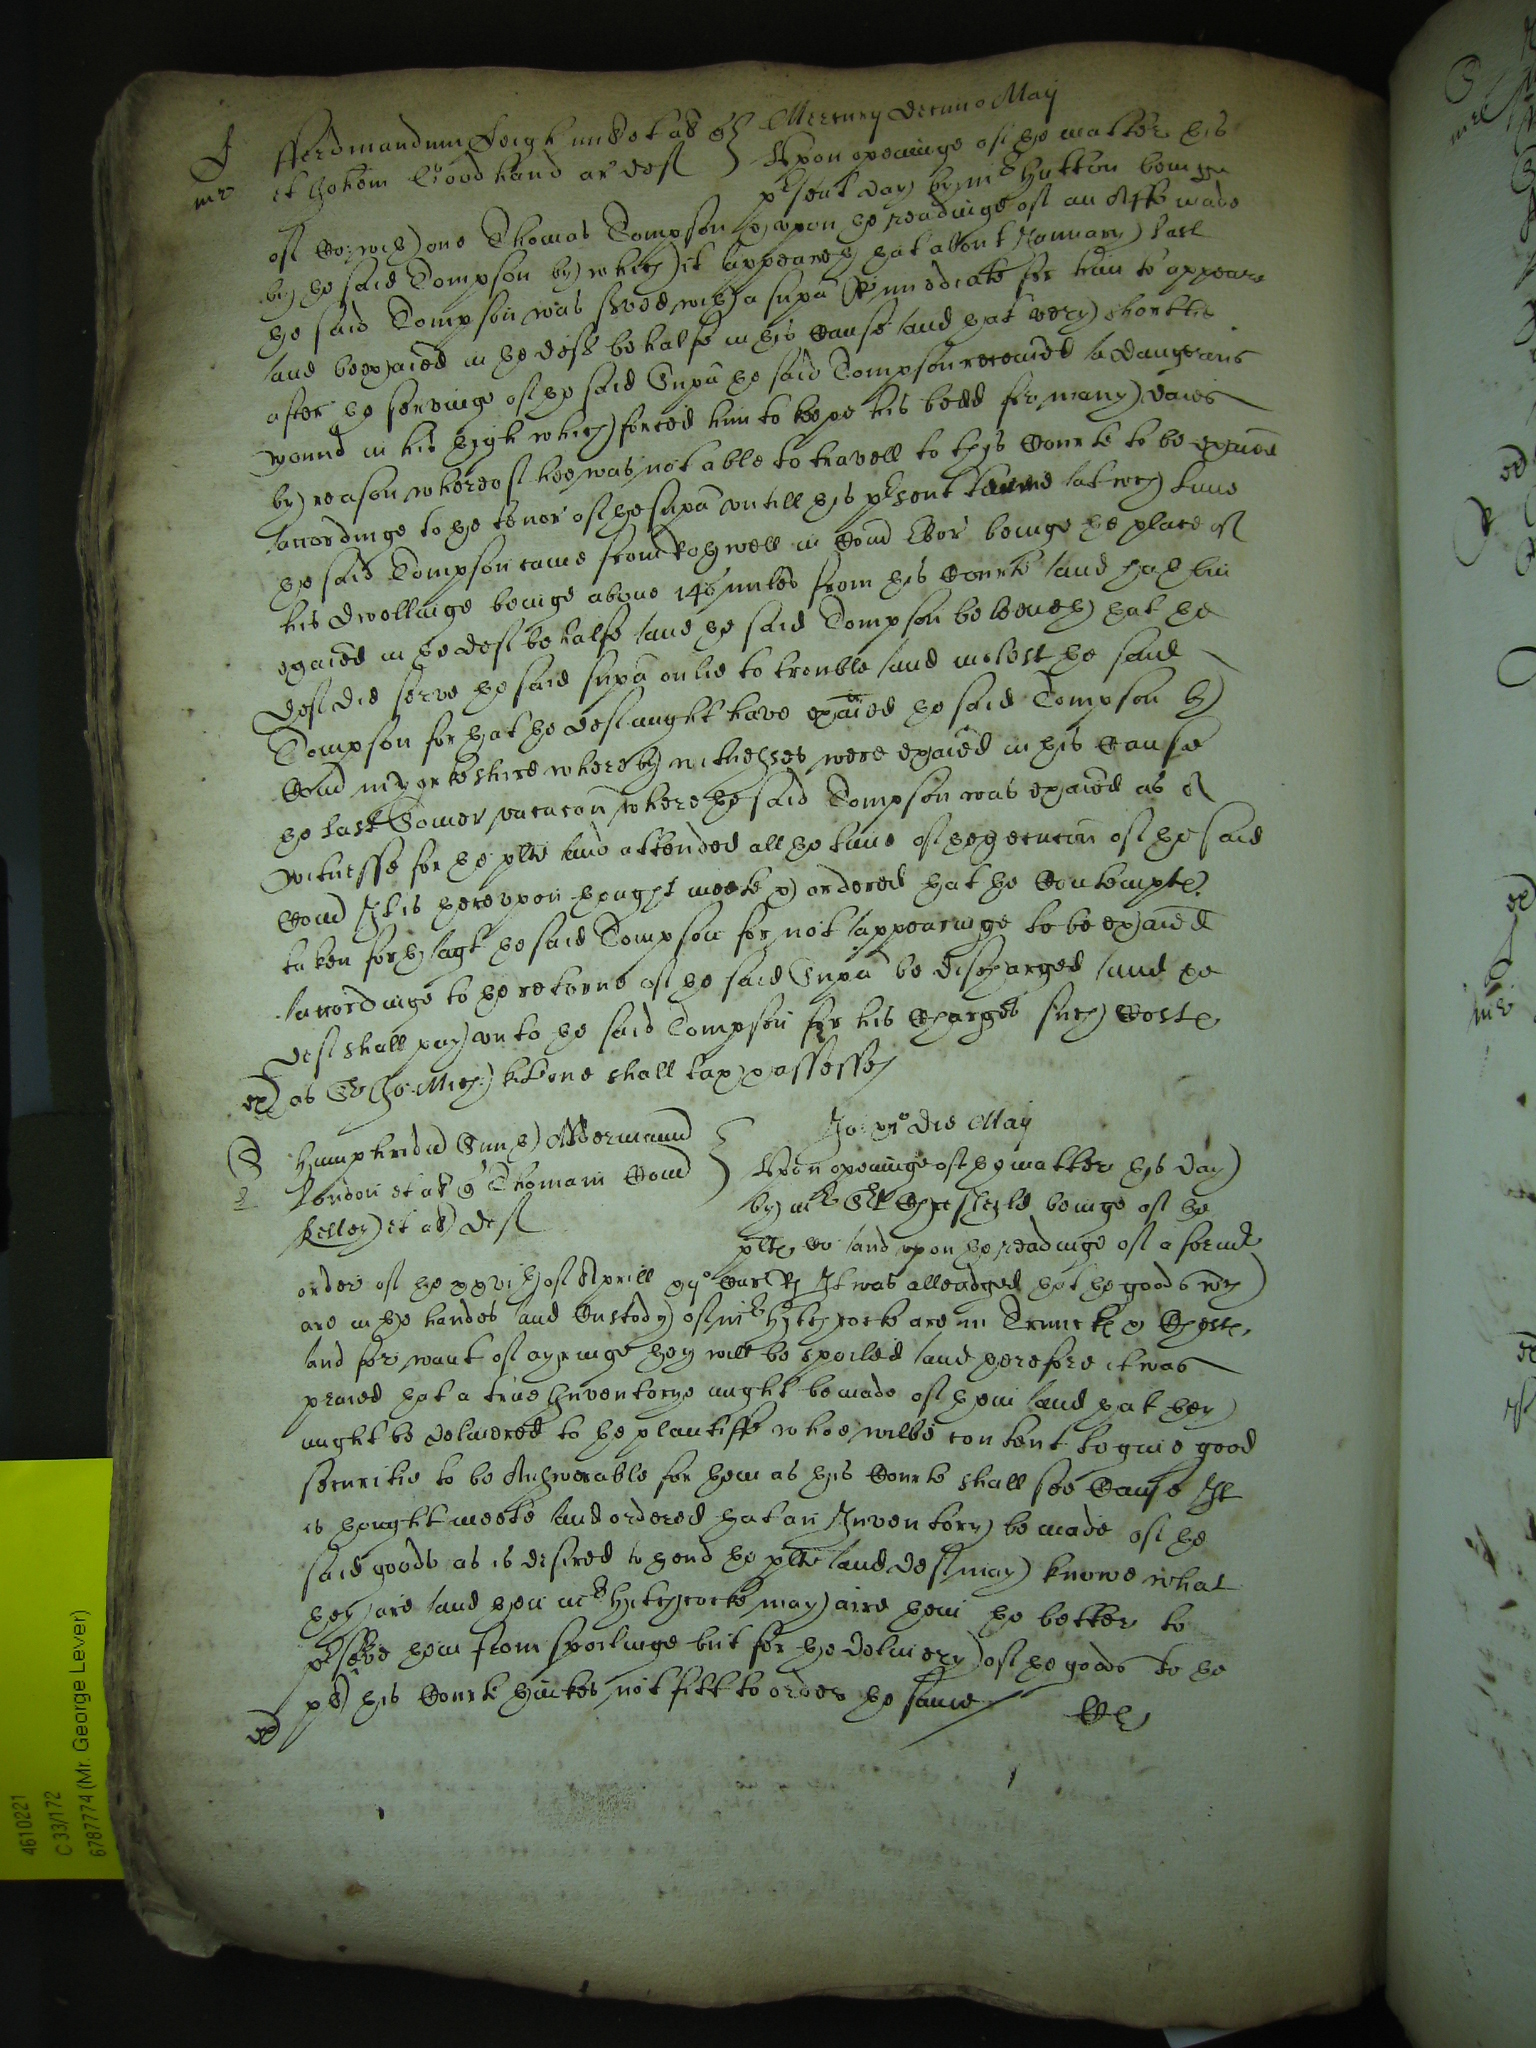 Mercury decimo Maij
F fferdinandum Leigh milit et al qt
mr et Johem Woodhand ar def
Upon openinge of the matter this
present day by mr Hutton beinge
of Co: with one Thomas Tompson & upon the readinge of an Afft made
by the said Tompson by which it appeareth that about January last
the said Tompson was served with a supa imediate for him to appeare
and be exaied in the defts behalfe in this Cause and that very shortlie
after the servinge of the said Supa the said Tompson receaived a dangerous
wound in his thigh which forced him to keepe his bedd for many daies
by reason whereof hee was not able to travell to this Courte to be exaied
accordinge to the tenor of the supa untill this psent tearme at wch time
the said Tompson came from Rothwell in Com Ebor beinge the place of
his dwellinge beinge above 140 miles from this Courte and hath bin
exaied in the def behalfe and the said Tompson beleeveth that the
def did serve the said supa onlie to trouble and molest the said
Tompson for that the def might have exaied the said Tompson by
Com in Yorkeshire whereby witnesses were exaied in this Cause
the last Somer vacacon where the said Tompson was exaied as a
witnesse for the plt and attended all the time of the execucion of the said
Com It is hereupon thought meete & ordered that the Contempte
taken forth agt the said Tompson for not appearinge to be exaied
accordinge to the retorne of the said Supa be discharged and the
def shall pay unto the said Tompson for his Charges such Coste
ex as Sr Jo: Mich: kt one shall tax & assesse
Jo: xio die Maij
S Humphridu Smyth Aldermannu
2 London et al qt Thomam Com
Kelley et al def
Upon openinge of the matter this day
by mr beinge of the
plte Co and upon the readinge of a former
order of the xxvith of April xiio Car Rs It was alleadged that the goods wch
are in the handes and Custody of mr Hitchcocke are in Truncke & Cheste
and for want of ayringe they wilbe spoiled and therefore it was
praied that a true Inventorye might be made of them and that they
might be delivered to the plantiffe whoe wilbe content to give good
securitie to be Answerable for them as this Courte shall see Cause It
is thought meete and ordered that an Inventory be made of the
said goods as is desired to thend the plte and def may knowe what
they are and then mr Hitchcocke may aire them the better to
pserve them from spoilinge but for the delivery of the goods to the
plt this Courte thinkes not fitt to order the same
ex
4610221
C 33/172
6787774 (Mr. George Lever)